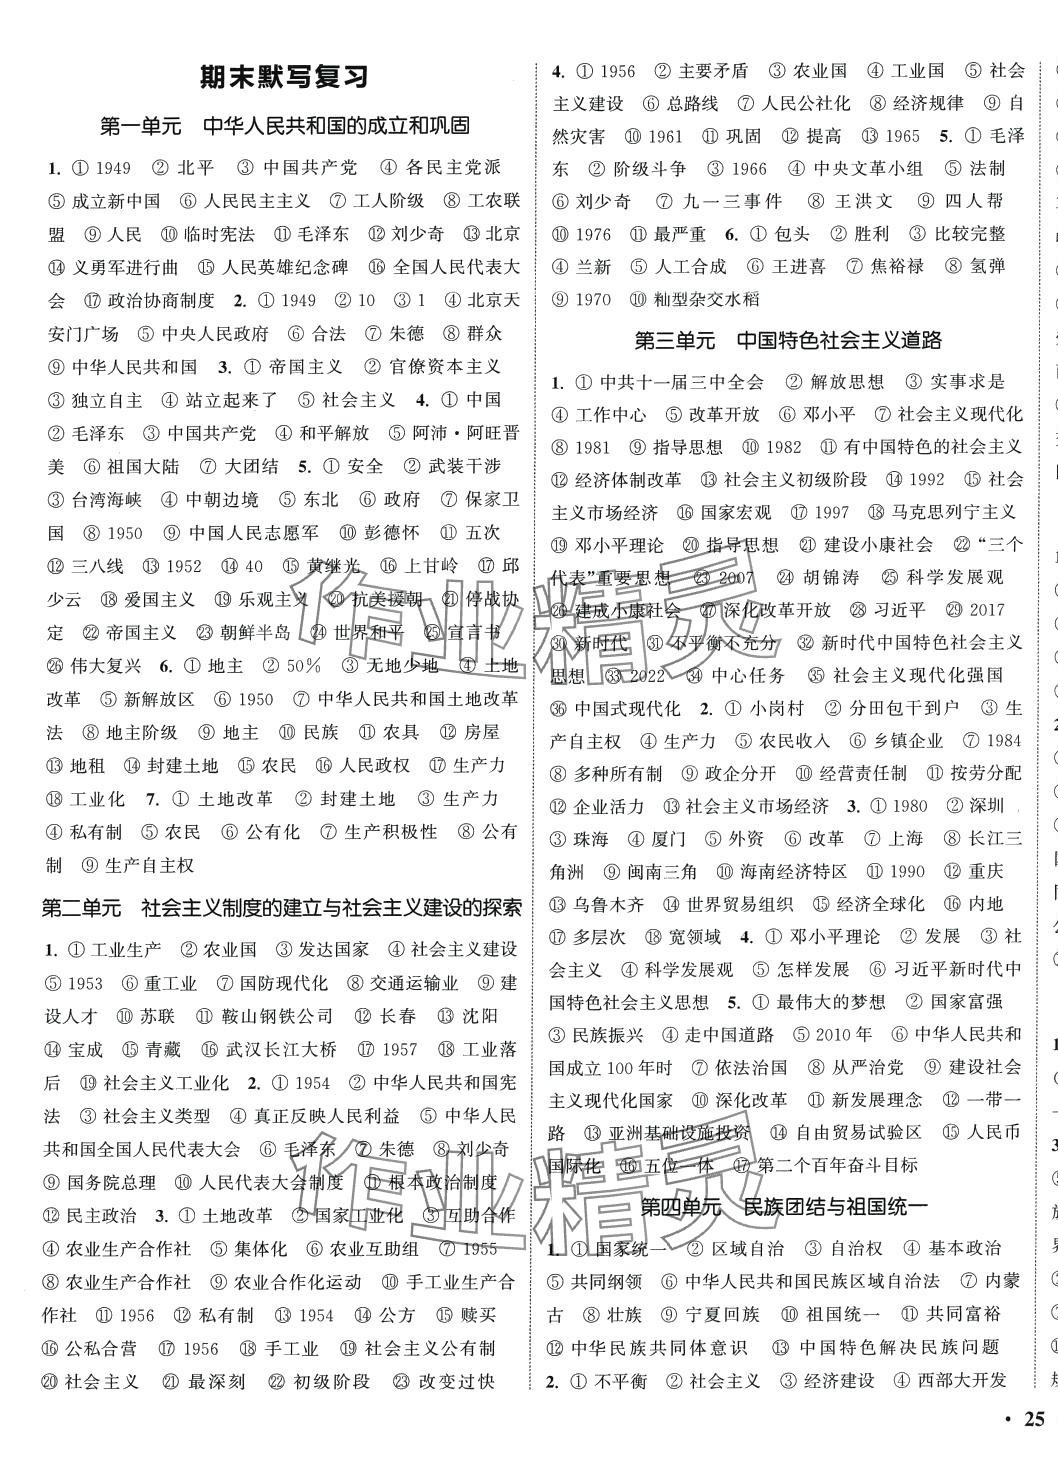 期末默写复习
第一单元　中华人民共和国的成立和巩固
1. ① 1949　② 北平　③ 中国共产党　④ 各民主党派
⑤ 成立新中国　⑥ 人民民主主义　⑦ 工人阶级　⑧ 工农联
盟　⑨ 人民　⑩ 临时宪法　⑪ 毛泽东　⑫ 刘少奇　⑬ 北京
⑭ 义勇军进行曲　⑮ 人民英雄纪念碑　⑯ 全国人民代表大
会　⑰ 政治协商制度　2. ① 1949　② 10　③ 1　④ 北京天
安门广场　⑤ 中央人民政府　⑥ 合法　⑦ 朱德　⑧ 群众
⑨ 中华人民共和国　3. ① 帝国主义　② 官僚资本主义
③ 独立自主　④ 站立起来了　⑤ 社会主义　4. ① 中国
② 毛泽东　③ 中国共产党　④ 和平解放　⑤ 阿沛·阿旺晋
美　⑥ 祖国大陆　⑦ 大团结　5. ① 安全　② 武装干涉
③ 台湾海峡　④ 中朝边境　⑤ 东北　⑥ 政府　⑦ 保家卫
国　⑧ 1950　⑨ 中国人民志愿军　⑩ 彭德怀　⑪ 五次
⑫ 三八线　⑬ 1952　⑭ 40　⑮ 黄继光　⑯ 上甘岭　⑰ 邱
少云　⑱ 爱国主义　⑲ 乐观主义　⑳ 抗美援朝　㉑ 停战协
定　㉒ 帝国主义　㉓ 朝鲜半岛　㉔ 世界和平　㉕ 宣言书
㉖ 伟大复兴　6. ① 地主　② 50%　③ 无地少地　④ 土地
改革　⑤ 新解放区　⑥ 1950　⑦ 中华人民共和国土地改革
法　⑧ 地主阶级　⑨ 地主　⑩ 民族　⑪ 农具　⑫ 房屋
⑬ 地租　⑭ 封建土地　⑮ 农民　⑯ 人民政权　⑰ 生产力
⑱ 工业化　7. ① 土地改革　② 封建土地　③ 生产力
④ 私有制　⑤ 农民　⑥ 公有化　⑦ 生产积极性　⑧ 公有
制　⑨ 生产自主权
第二单元　社会主义制度的建立与社会主义建设的探索
1. ① 工业生产　② 农业国　③ 发达国家　④ 社会主义建设
⑤ 1953　⑥ 重工业　⑦ 国防现代化　⑧ 交通运输业　⑨ 建
设人才　⑩ 苏联　⑪ 鞍山钢铁公司　⑫ 长春　⑬ 沈阳
⑭ 宝成　⑮ 青藏　⑯ 武汉长江大桥　⑰ 1957　⑱ 工业落
后　⑲ 社会主义工业化　2. ① 1954　② 中华人民共和国宪
法　③ 社会主义类型　④ 真正反映人民利益　⑤ 中华人民
共和国全国人民代表大会　⑥ 毛泽东　⑦ 朱德　⑧ 刘少奇
⑨ 国务院总理　⑩ 人民代表大会制度　⑪ 根本政治制度
⑫ 民主政治　3. ① 土地改革　② 国家工业化　③ 互助合作
④ 农业生产合作社　⑤ 集体化　⑥ 农业互助组　⑦ 1955
⑧ 农业生产合作社　⑨ 农业合作化运动　⑩ 手工业生产合
作社　⑪ 1956　⑫ 私有制　⑬ 1954　⑭ 公方　⑮ 赎买
⑯ 公私合营　⑰ 1956　⑱ 手工业　⑲ 社会主义公有制
⑳ 社会主义　㉑ 最深刻　㉒ 初级阶段　㉓ 改变过快
4. ① 1956　② 主要矛盾　③ 农业国　④ 工业国　⑤ 社会
主义建设　⑥ 总路线　⑦ 人民公社化　⑧ 经济规律　⑨ 自
然灾害　⑩ 1961　⑪ 巩固　⑫ 提高　⑬ 1965　5. ① 毛泽
东　② 阶级斗争　③ 1966　④ 中央文革小组　⑤ 法制
⑥ 刘少奇　⑦ 九一三事件　⑧ 王洪文　⑨ 四人帮
⑩ 1976　⑪ 最严重　6. ① 包头　② 胜利　③ 比较完整
④ 兰新　⑤ 人工合成　⑥ 王进喜　⑦ 焦裕禄　⑧ 氢弹
⑨ 1970　⑩ 籼型杂交水稻
第三单元　中国特色社会主义道路
1. ① 中共十一届三中全会　② 解放思想　③ 实事求是
④ 工作中心　⑤ 改革开放　⑥ 邓小平　⑦ 社会主义现代化
⑧ 1981　⑨ 指导思想　⑩ 1982　⑪ 有中国特色的社会主义
⑫ 经济体制改革　⑬ 社会主义初级阶段　⑭ 1992　⑮ 社会
主义市场经济　⑯ 国家宏观　⑰ 1997　⑱ 马克思列宁主义
⑲ 邓小平理论　⑳ 指导思想　㉑ 建设小康社会　㉒ “三个
代表”重要思想　㉓ 2007　㉔ 胡锦涛　㉕ 科学发展观
㉖ 建成小康社会　㉗ 深化改革开放　㉘ 习近平　㉙ 2017
㉚ 新时代　㉛ 不平衡不充分　㉜ 新时代中国特色社会主义
思想　㉝ 2022　㉞ 中心任务　㉟ 社会主义现代化强国
㊱ 中国式现代化　2. ① 小岗村　② 分田包干到户　③ 生
产自主权　④ 生产力　⑤ 农民收入　⑥ 乡镇企业　⑦ 1984
⑧ 多种所有制　⑨ 政企分开　⑩ 经营责任制　⑪ 按劳分配
⑫ 企业活力　⑬ 社会主义市场经济　3. ① 1980　② 深圳
③ 珠海　④ 厦门　⑤ 外资　⑥ 改革　⑦ 上海　⑧ 长江三
角洲　⑨ 闽南三角　⑩ 海南经济特区　⑪ 1990　⑫ 重庆
⑬ 乌鲁木齐　⑭ 世界贸易组织　⑮ 经济全球化　⑯ 内地
⑰ 多层次　⑱ 宽领域　4. ① 邓小平理论　② 发展　③ 社
会主义　④ 科学发展观　⑤ 怎样发展　⑥ 习近平新时代中
国特色社会主义思想　5. ① 最伟大的梦想　② 国家富强
③ 民族振兴　④ 走中国道路　⑤ 2010 年　⑥ 中华人民共和
国成立 100 年时　⑦ 依法治国　⑧ 从严治党　⑨ 建设社会
主义现代化国家　⑩ 深化改革　⑪ 新发展理念　⑫ 一带一
路　⑬ 亚洲基础设施投资　⑭ 自由贸易试验区　⑮ 人民币
国际化　⑯ 五位一体　⑰ 第二个百年奋斗目标
第四单元　民族团结与祖国统一
1. ① 国家统一　② 区域自治　③ 自治权　④ 基本政治
⑤ 共同纲领　⑥ 中华人民共和国民族区域自治法　⑦ 内蒙
古　⑧ 壮族　⑨ 宁夏回族　⑩ 祖国统一　⑪ 共同富裕
⑫ 中华民族共同体意识　⑬ 中国特色解决民族问题
2. ① 不平衡　② 社会主义　③ 经济建设　④ 西部大开发
· 25
作业精灵
作业精灵